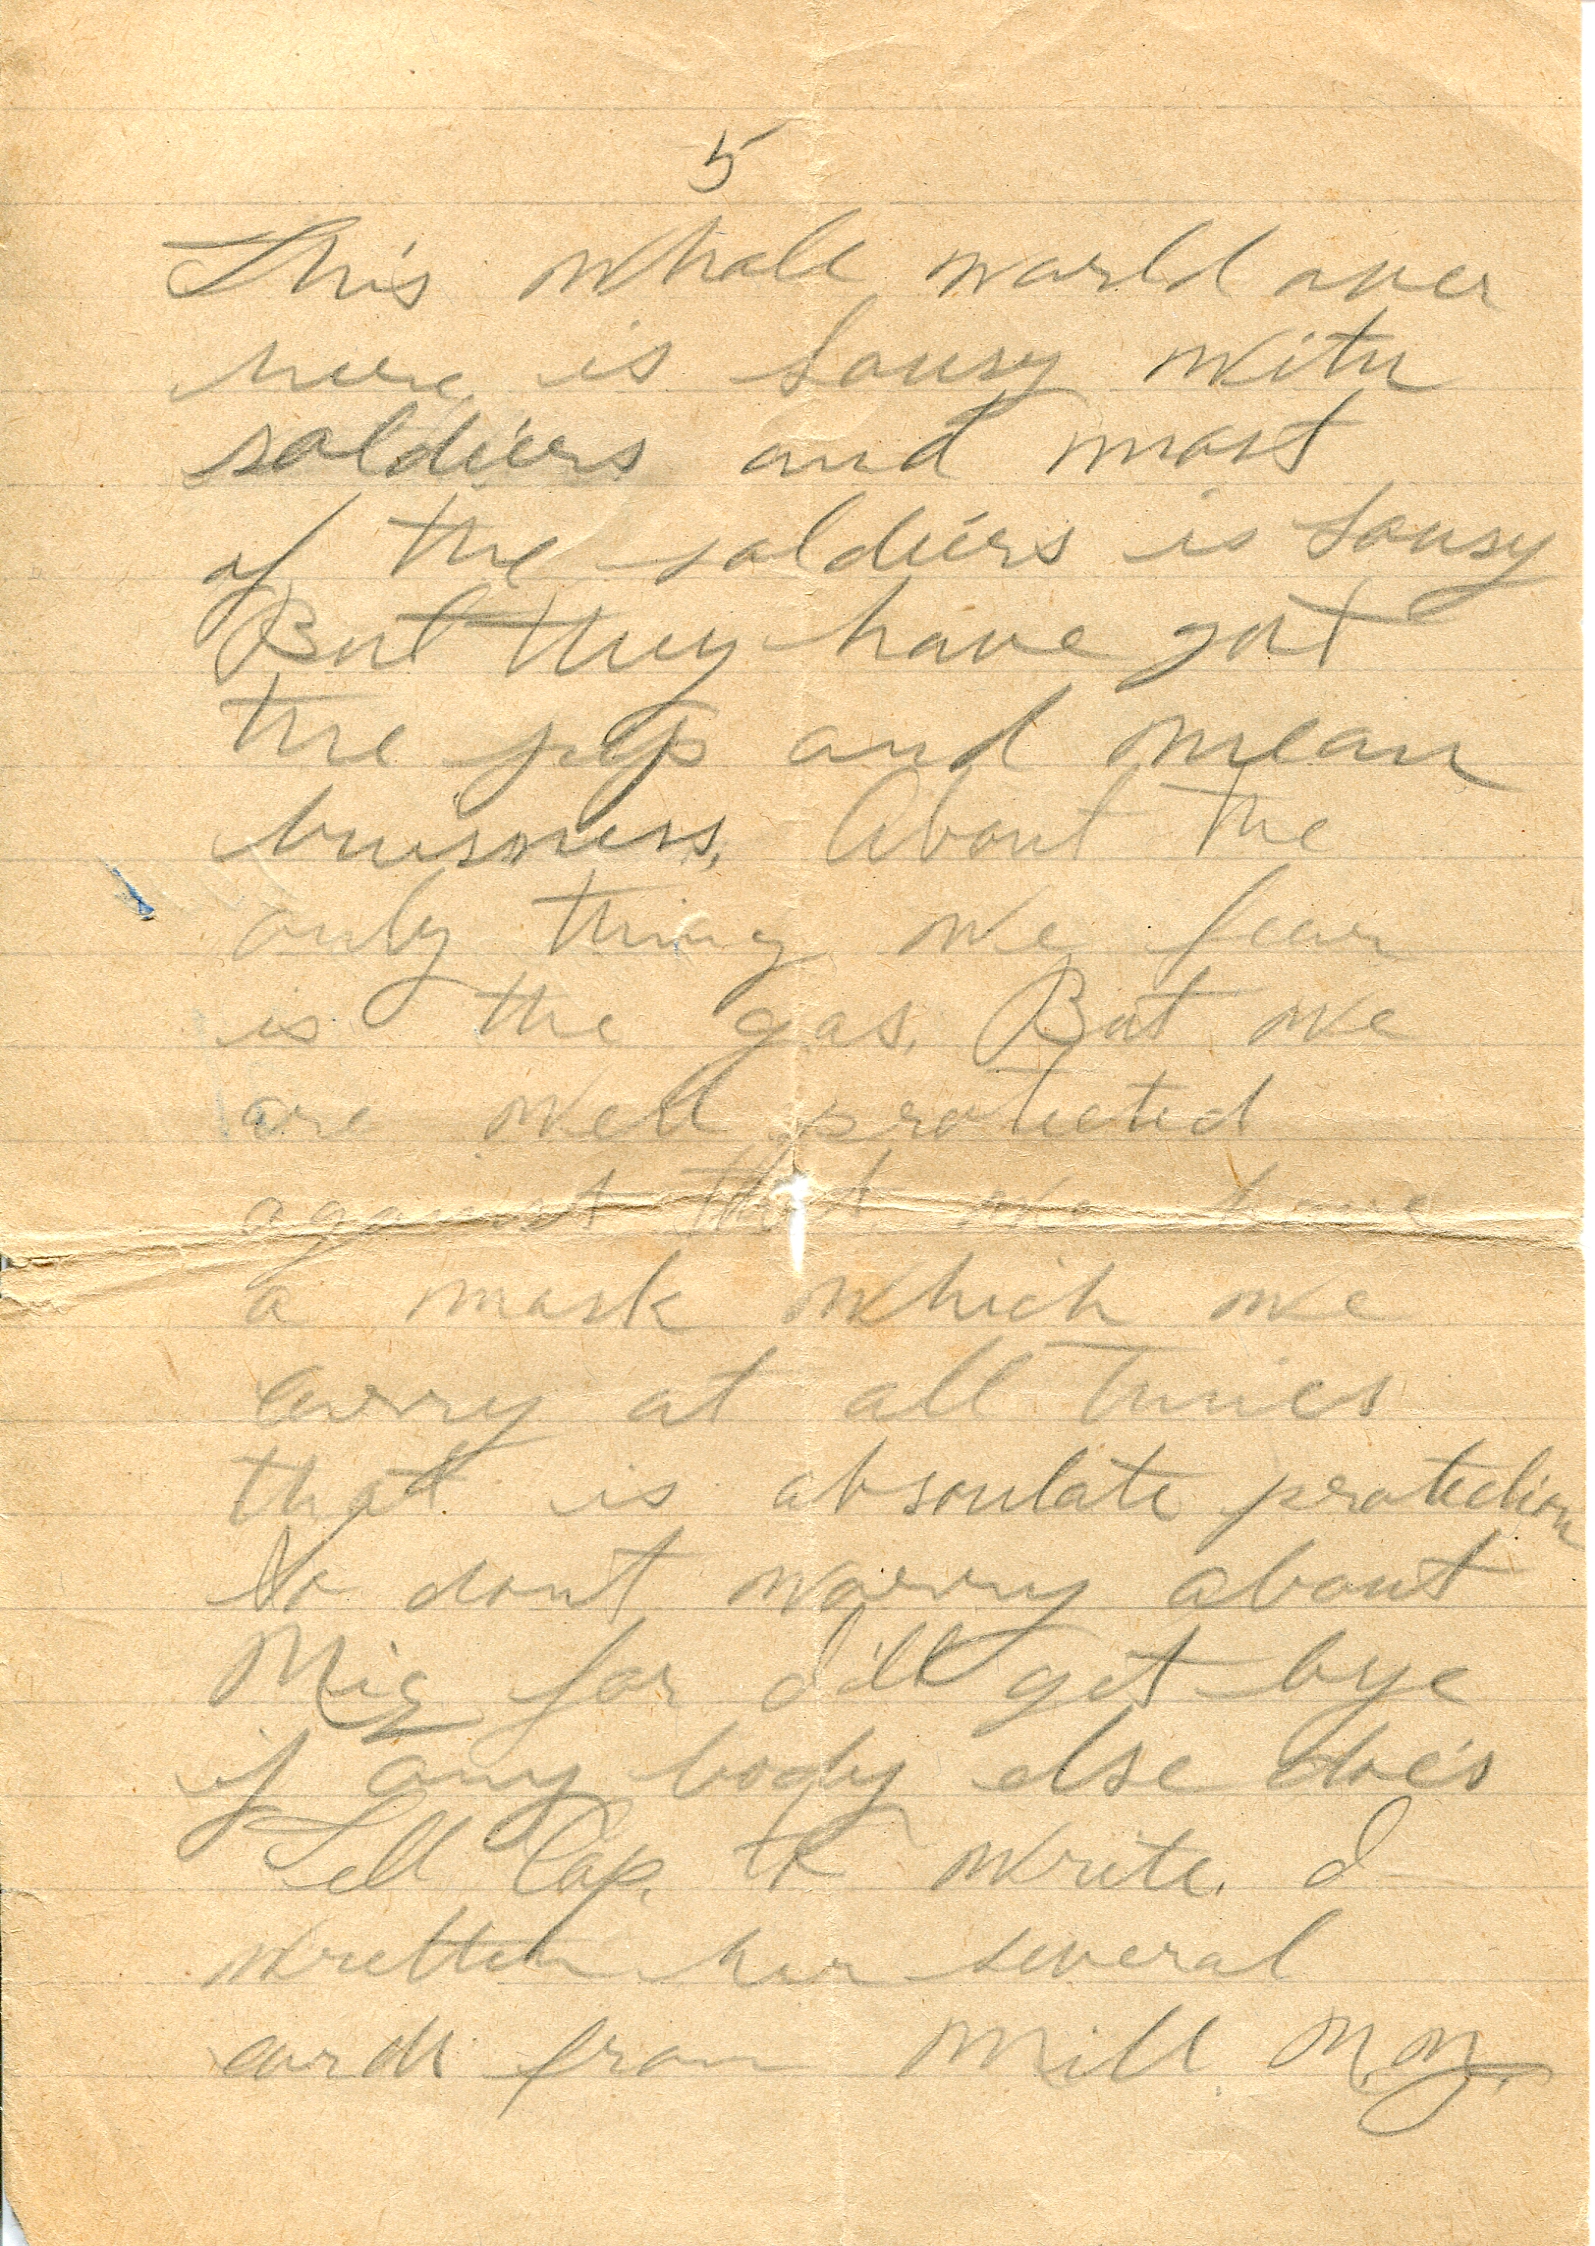 5
This whole world over
here is Lousy with
soldiers and most
of the soldiers is Lousy
But they have got
the pep and mean
buisness. About the
only thing we fear
is the gas. But we
are well protected
against that. we have
a mask which we
carry at all times
that is absoulate protection
So dont worry about
for I'll get bye
if any body else does
Tell Cap. to write. I
written her several
cards from Mill